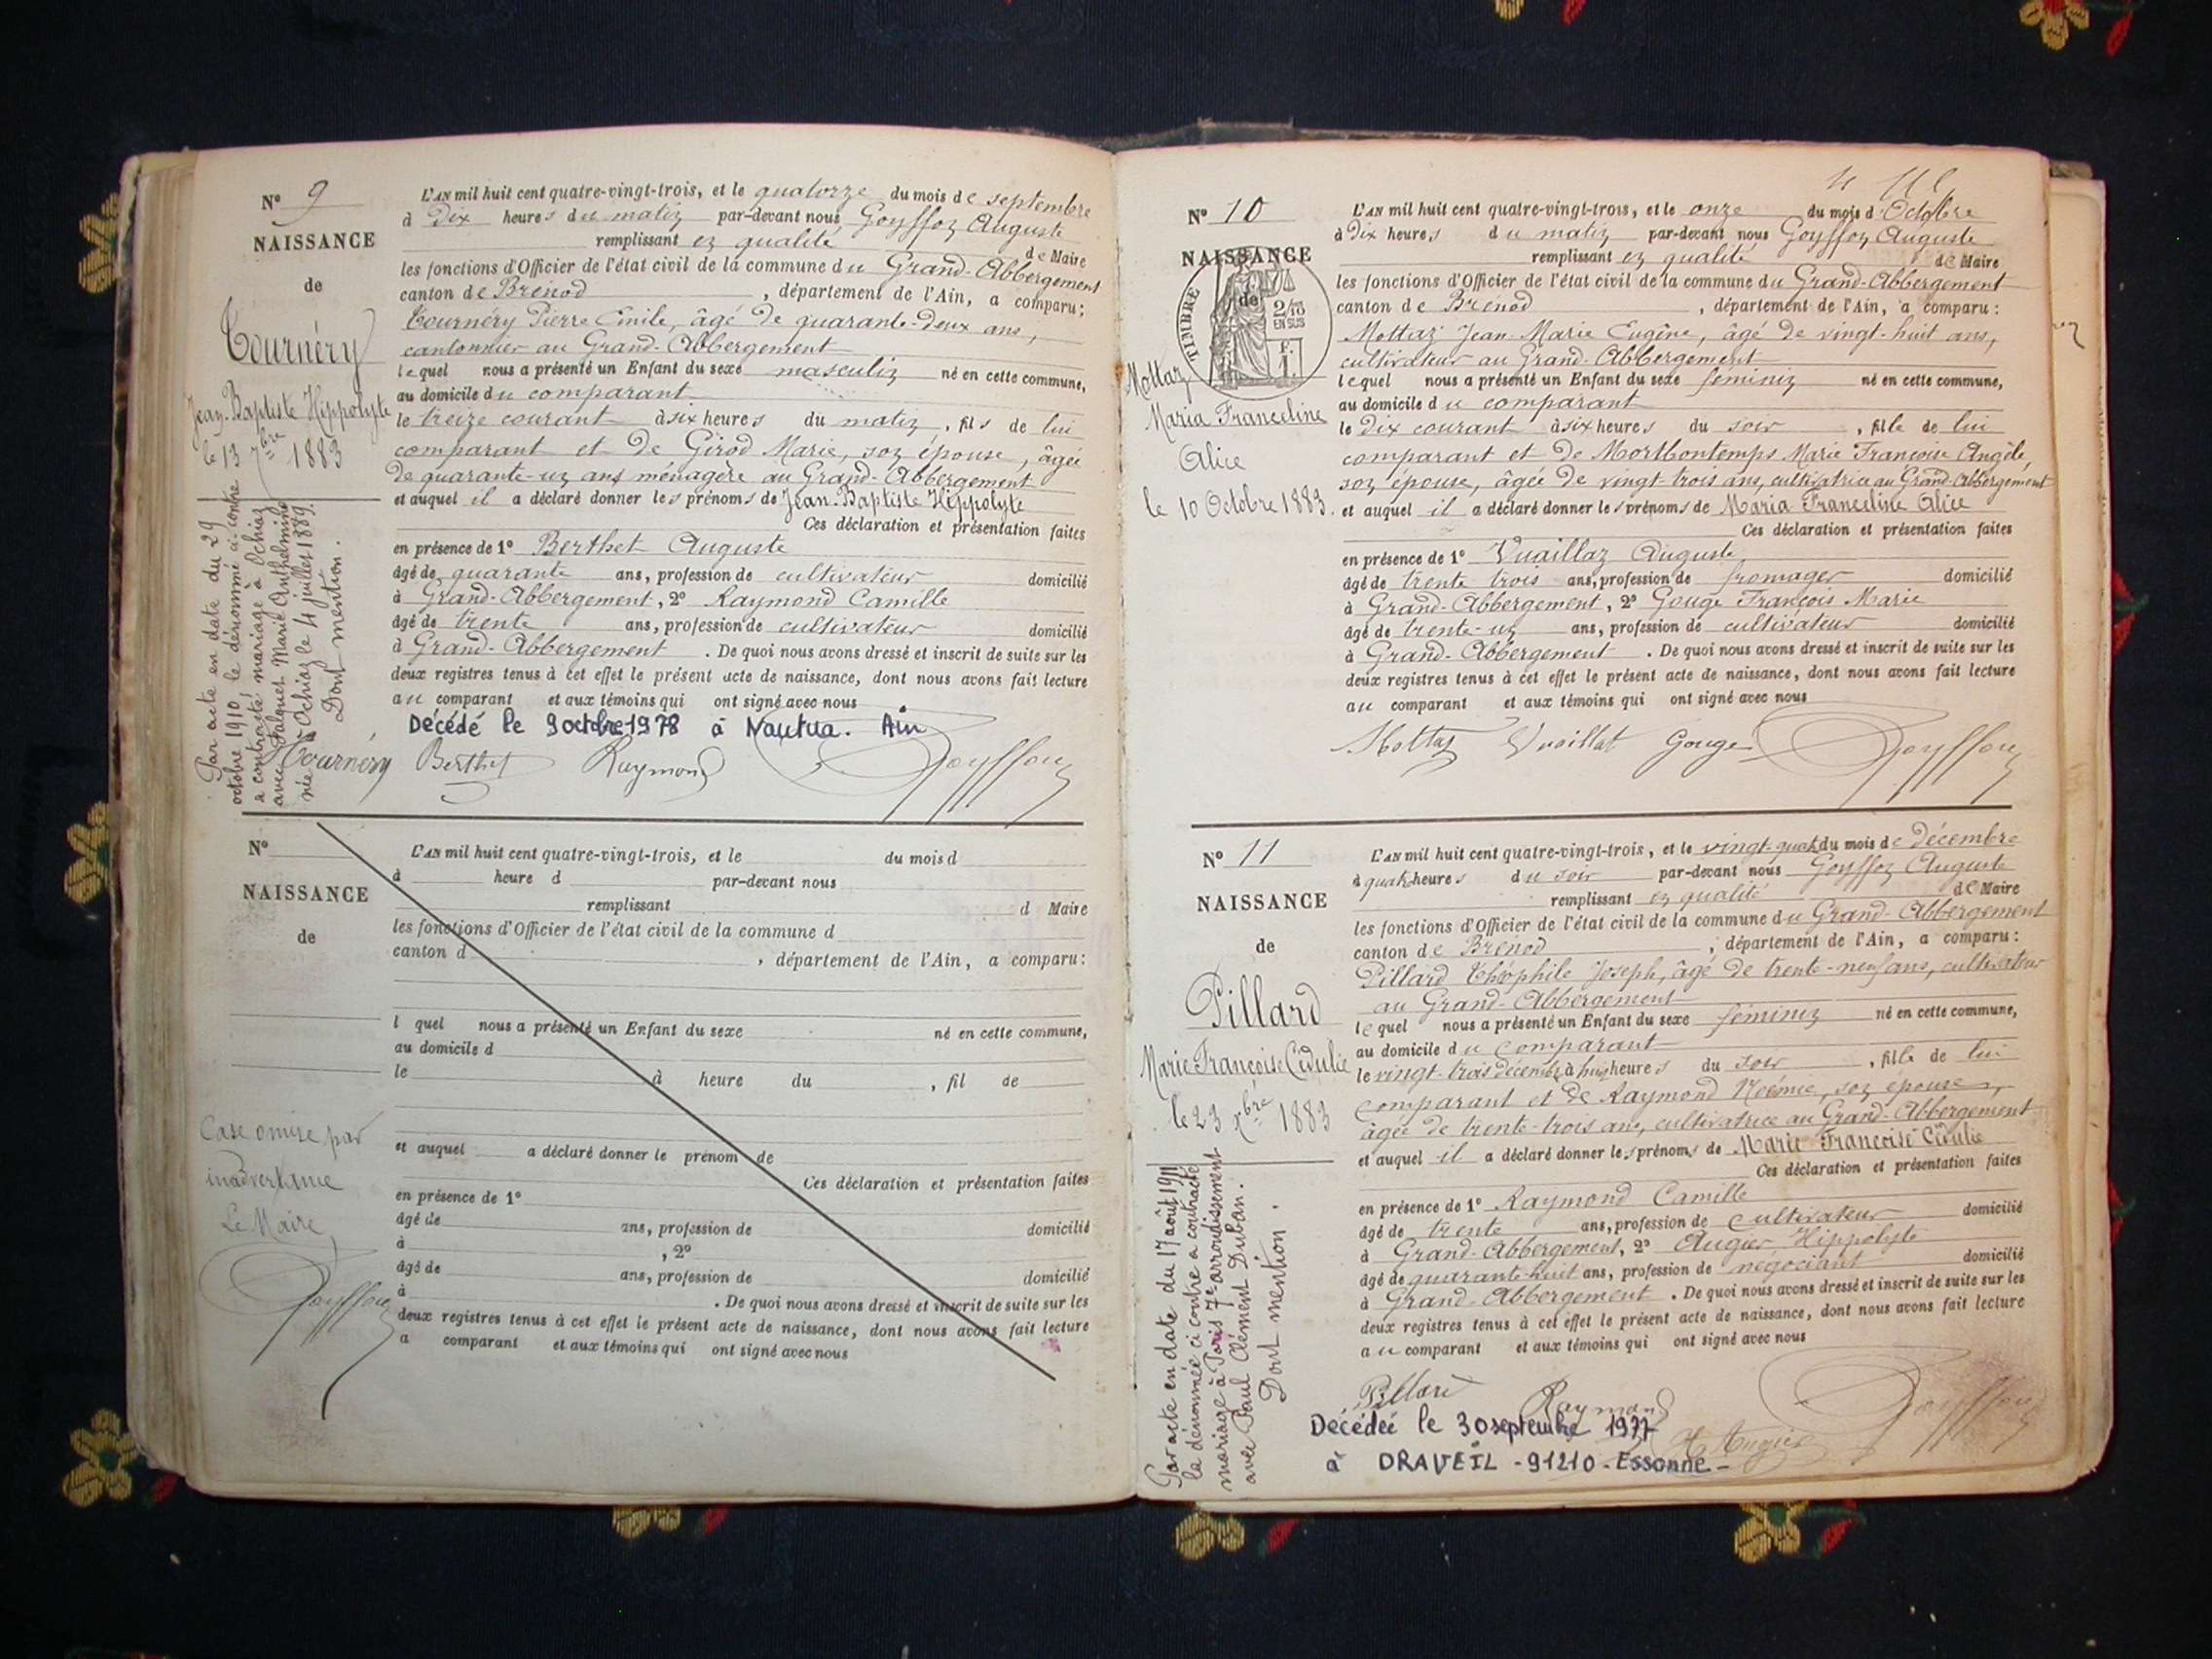 N° 9
NAISSANCE
de
Tournéry
Jean-Baptiste Hippolyte
le 13 7bre 1883
Par acte en date du 29
octobre 1910 le dénommé ci-contre
a contracté mariage à Ochiaz
avec Jalquet Marie Anthelmine
née à Ochiaz le 4 juillet 1889.
Dont mention.
L'AN mil huit cent quatre-vingt-trois, et le quatorze du mois de septembre
à dix heures du matin par-devant nous Goyffon Auguste
remplissant en qualité de Maire
les fonctions d'Officier de l'état civil de la commune du Grand-Abbergement
canton de Brénod, département de l'Ain, a comparu:
Tournéry Pierre Emile, âgé de quarante-deux ans,
cantonnier au Grand-Abbergement
lequel nous a présenté un Enfant du sexe masculin né en cette commune,
au domicile du comparant
le treize courant à six heures du matin, fils de lui
comparant et de Girod Marie, son épouse, âgée
de quarante-un ans ménagère au Grand-Abbergement
et auquel il a déclaré donner les prénoms de Jean-Baptiste Hippolyte
Ces déclaration et présentation faites
en présence de 1° Berthet Auguste
âgé de quarante ans, profession de cultivateur domicilié
à Grand-Abbergement, 2° Raymond Camille
âgé de trente ans, profession de cultivateur domicilié
à Grand-Abbergement. De quoi nous avons dressé et inscrit de suite sur les
deux registres tenus à cet effet le présent acte de naissance, dont nous avons fait lecture
au comparant et aux témoins qui ont signé avec nous
Décédé le 9 octobre 1978 à Nantua. Ain
Tournéry Berthet Raymond Goyffon
N°
NAISSANCE
de
Case omise par
inadvertance
Le Maire
Goyffon
L'AN mil huit cent quatre-vingt-trois, et le du mois d
à heure d par-devant nous
remplissant d Maire
les fonctions d'Officier de l'état civil de la commune d
canton d , département de l'Ain, a comparu:
l quel nous a présenté un Enfant du sexe né en cette commune,
au domicile d
le à heure du , fil de
et auquel a déclaré donner le prénom de
Ces déclaration et présentation faites
en présence de 1°
âgé de ans, profession de domicilié
à , 2°
âgé de ans, profession de domicilié
à . De quoi nous avons dressé et inscrit de suite sur les
deux registres tenus à cet effet le présent acte de naissance, dont nous avons fait lecture
a comparant et aux témoins qui ont signé avec nous
N° 10
NAISSANCE
de
TIMBRE
2/10
EN SUS
Mottaz
Maria Franceline
Alice
le 10 Octobre 1883.
L'AN mil huit cent quatre-vingt-trois, et le onze du mois d'Octobre
à dix heures du matin par-devant nous Goyffon Auguste
remplissant en qualité de Maire
les fonctions d'Officier de l'état civil de la commune du Grand-Abbergement
canton de Brénod, département de l'Ain, a comparu:
Mottaz Jean-Marie Eugène, âgé de vingt-huit ans,
cultivateur au Grand-Abbergement
lequel nous a présenté un Enfant du sexe féminin né en cette commune,
au domicile du comparant
le dix courant à six heures du soir, fille de lui
comparant et de Mortbontemps Marie Françoise Angèle,
son épouse, âgée de vingt trois ans, cultivatrice au Grand-Abbergement
et auquel il a déclaré donner les prénoms de Maria Franceline Alice
Ces déclaration et présentation faites
en présence de 1° Vuaillaz Auguste
âgé de trente trois ans, profession de fromager domicilié
à Grand-Abbergement, 2° Gouge François Marie
âgé de trente-un ans, profession de cultivateur domicilié
à Grand-Abbergement. De quoi nous avons dressé et inscrit de suite sur les
deux registres tenus à cet effet le présent acte de naissance, dont nous avons fait lecture
au comparant et aux témoins qui ont signé avec nous
Mottaz Vuaillat Gouge Goyffon
N° 11
NAISSANCE
de
Pillard
Marie Françoise Cédulie
le 23 Xbre 1883
Par acte en date du 17 août 1911
la dénommée ci contre a contracté
mariage à Paris 7e arrondissement
avec Paul Clément Duban.
Dont mention.
L'AN mil huit cent quatre-vingt-trois, et le vingt-quat du mois de décembre
à quatre heures du soir par-devant nous Goyffon Auguste
remplissant en qualité de Maire
les fonctions d'Officier de l'état civil de la commune du Grand-Abbergement
canton de Brénod, département de l'Ain, a comparu:
Pillard Théophile Joseph, âgé de trente-neuf ans, cultivateur
au Grand-Abbergement
lequel nous a présenté un Enfant du sexe féminin né en cette commune,
au domicile du comparant
le vingt-trois décembre à huit heures du soir, fille de lui
comparant et de Raymond Noémie, son épouse,
âgée de trente-trois ans, cultivatrice au Grand-Abbergement
et auquel il a déclaré donner les prénoms de Marie Françoise Cédulie
Ces déclaration et présentation faites
en présence de 1° Raymond Camille
âgé de trente ans, profession de cultivateur domicilié
à Grand-Abbergement, 2° Augier Hippolyte
âgé de quarante-huit ans, profession de négociant domicilié
à Grand-Abbergement. De quoi nous avons dressé et inscrit de suite sur les
deux registres tenus à cet effet le présent acte de naissance, dont nous avons fait lecture
au comparant et aux témoins qui ont signé avec nous
Pillard Raymond Goyffon
Décédée le 30 septembre 1977
H. Augier
à DRAVEIL - 91210 - Essonne -